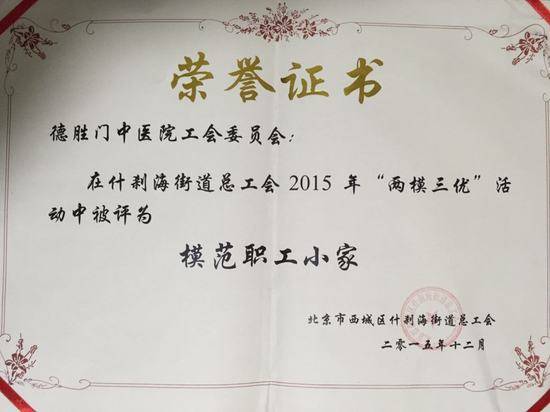 荣誉证书
德胜门中医院工会委员会：
在什刹海街道总工会2015年“两模三优”活
动中被评为
模范职工小家
北京市西城区什刹海街道总工会
二〇一五年十二月